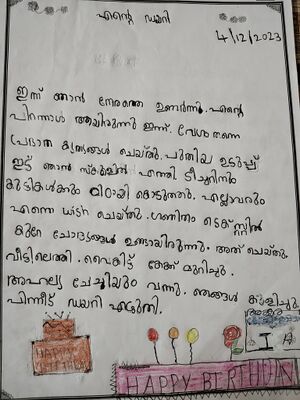 എന്റെ ഡയറി
4/12/2023
ഇന്ന് ഞാൻ നേരത്തെ ഉണർന്നു. എന്റെ
പിറന്നാൾ ആയിരുന്നു ഇന്ന്. വേഗം തന്നെ
പ്രഭാത കൃത്യങ്ങൾ ചെയ്തു. പുതിയ ഉടുപ്പ്
ഇട്ട് ഞാൻ സ്കൂളിൽ എത്തി ടീച്ചറിനും
കുട്ടികൾക്കും മിഠായി കൊടുത്തു. എല്ലാവരും
എന്നെ wish ചെയ്തു. ഗണിതം ടെക്സ്റ്റിൽ
കുറേ ചോദ്യങ്ങൾ ഉണ്ടായിരുന്നു. അത് ചെയ്തു.
വീട്ടിലെത്തി. വൈകിട്ട് കേക്ക് മുറിച്ചു.
അഹല്യ ചേച്ചിയും വന്നു. ഞങ്ങൾ കളിച്ചു
പിന്നീട് ഡയറി എഴുതി.
HAPPY BIRTHDAY
I A
HAPPY BERTHDAY